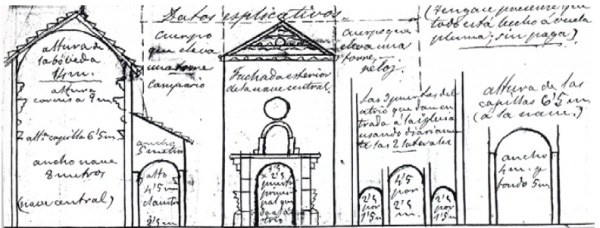 Datos explicativos
(Téngase presente que
todo está hecho á vuela
pluma, sin pago)
altura de
la bóveda
14 m.
altura
cornisa 9 m
alt.ª capilla 6'5 m
ancho nave
8 metros
(nave central)
ancho
alto
4'5 m
Cuerpo
que eleva
una torre
campario
Fachada exterior
de la nave central.
2'5
puerta
princi
pal que
Cuerpo que
eleva una
torre,
reloj
Las 3 puertas del
atrio que dan en
trada á la iglesia
usando diariamen
te las 2 laterales
2'5
por
1'5 m
4'5
por
2'5
m.
2'5
por
1'5 m
altura de las
capillas 6'5 m
(á la nave)
ancho
4 m. y
fondo 5 m